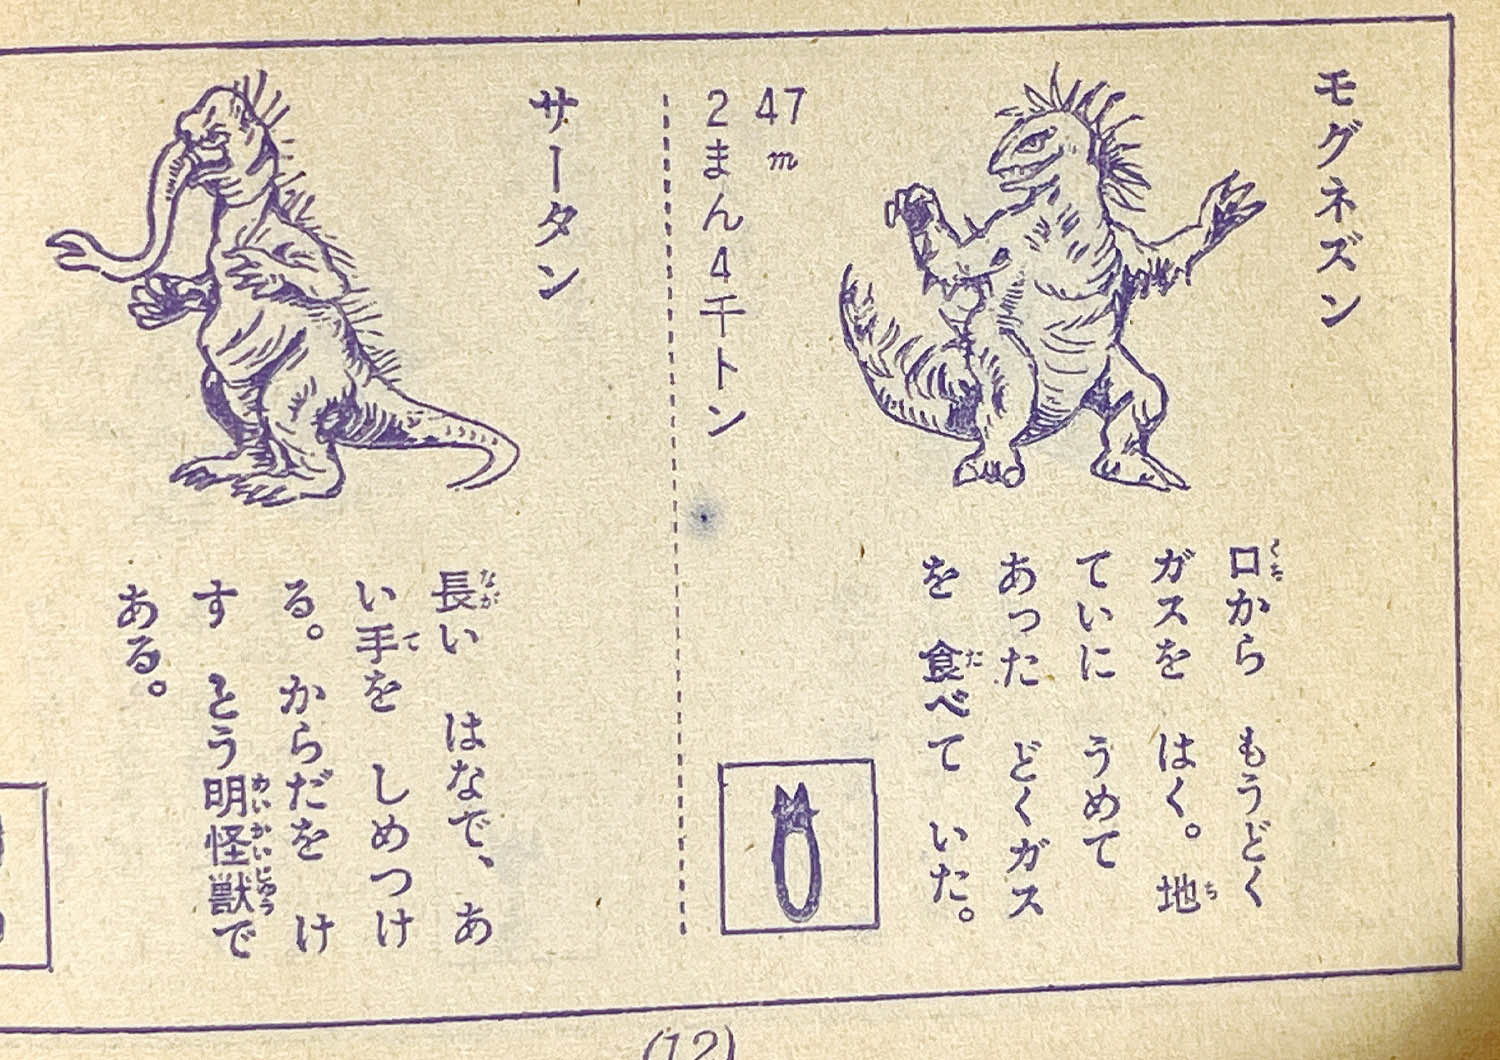 モグネズン
口から　もうどく
くち
ガスを　はく。地
ち
ていに　うめて
あった　どくガス
を　食べて　いた。
た
47m
2まん4千トン
サータン
長い　はなで、あ
なが
い手を　しめつけ
て
る。からだを　け
す　とう明怪獣で
めいかいじゅう
ある。
(12)